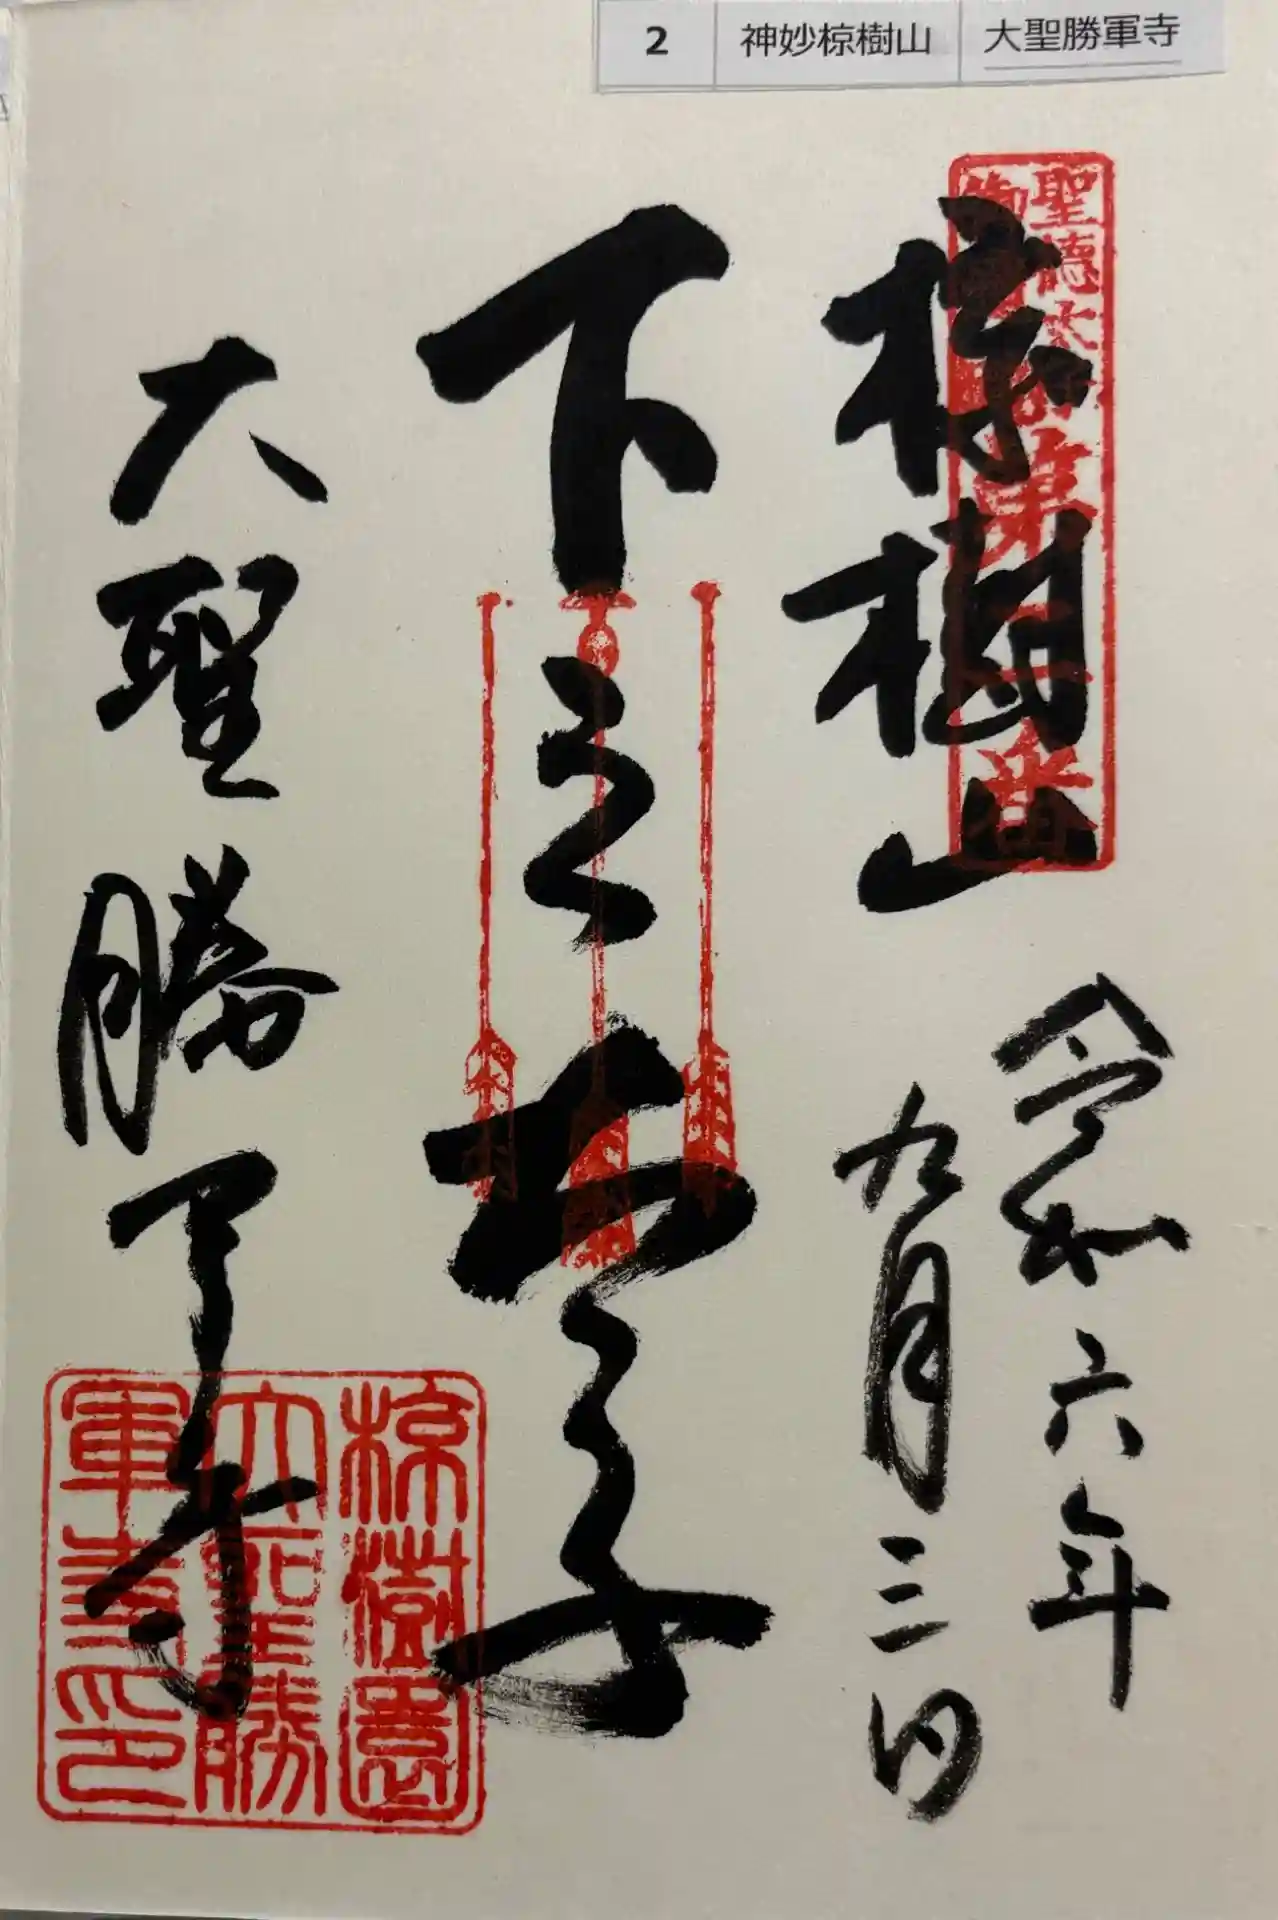 2 神妙椋樹山 大聖勝軍寺
聖徳太子
御遺跡
第二番
椋樹山
令和六年
九月三日
下之太子
大聖勝軍寺
椋樹園
大聖勝
軍寺印